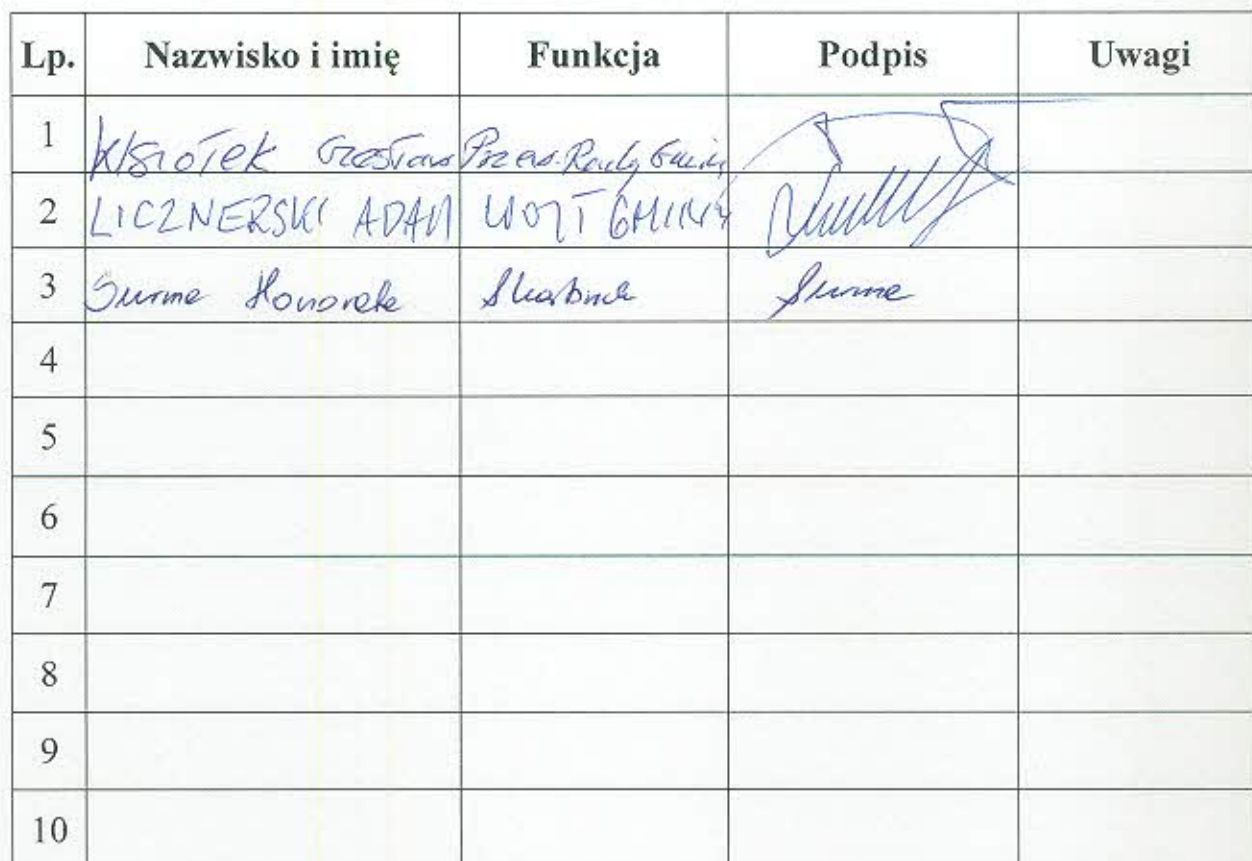 Lp. Nazwisko i imię Funkcja Podpis Uwagi
1 Przew. Rady Gminy
2 LICZNERSKI ADAM WÓJT GMINY
3 Surma Honorata Skarbnik Surma
4
5
6
7
8
9
10